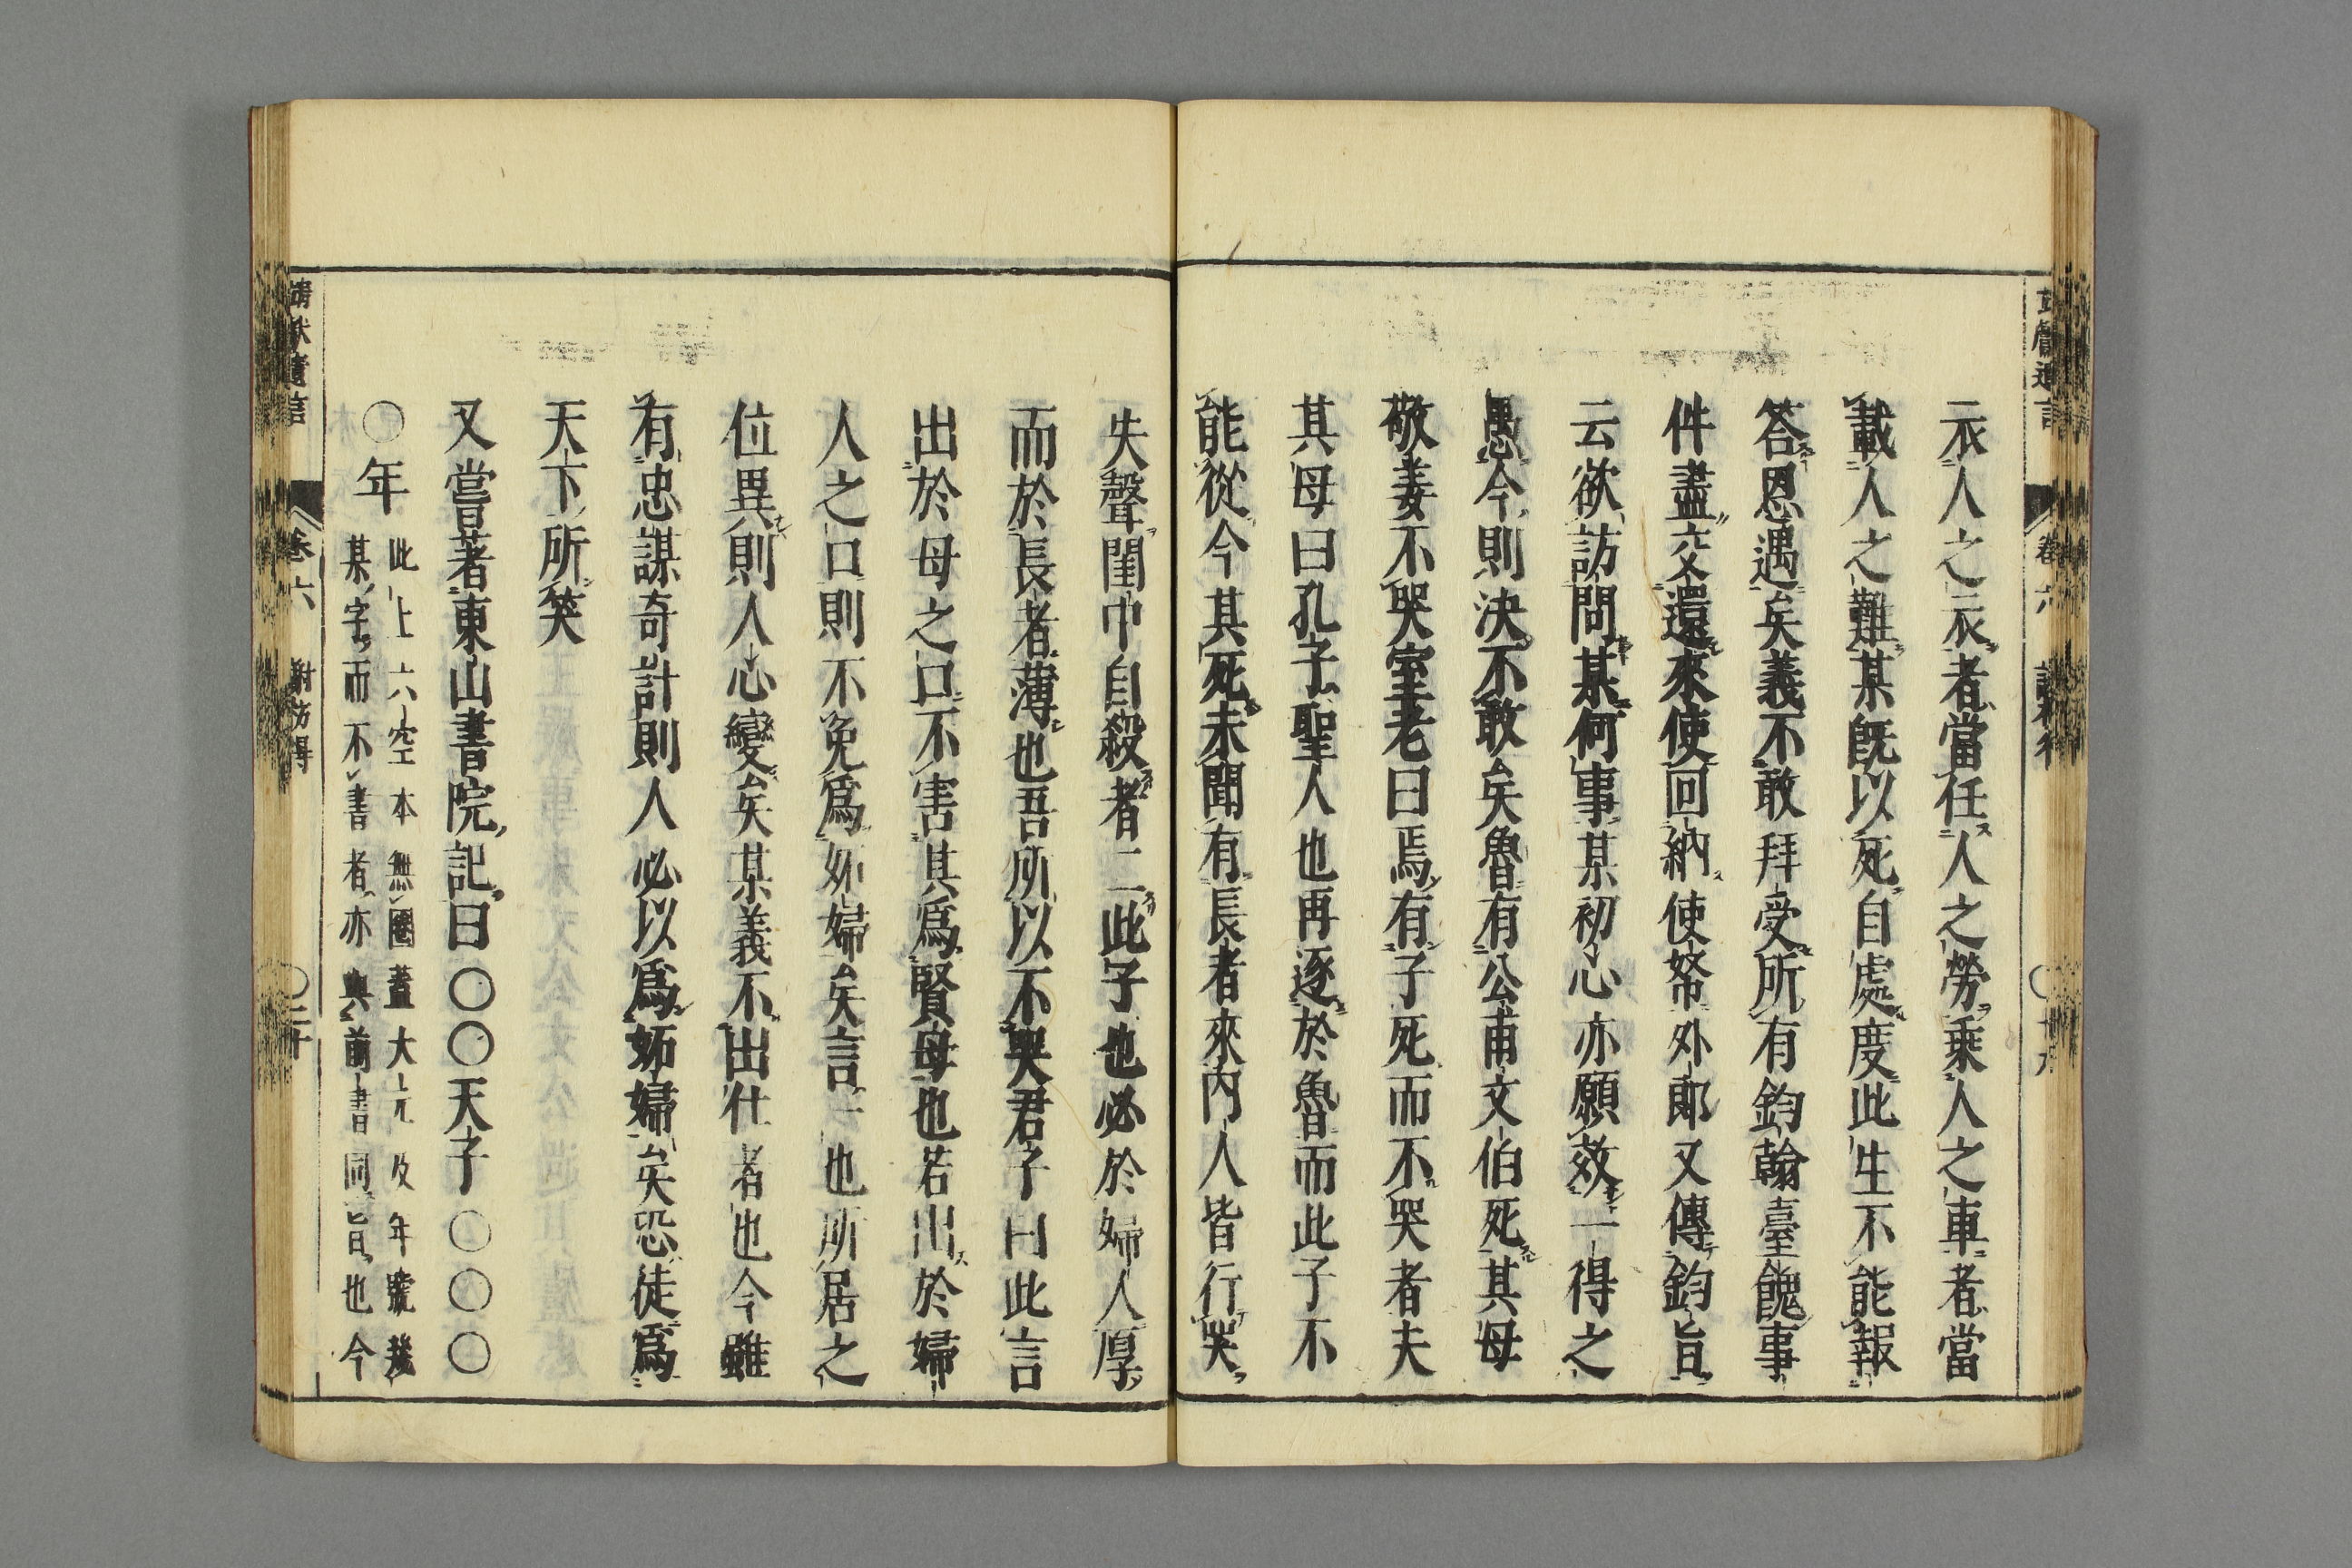 衣人之衣者當任人之勞乘人之車者當
載人之難某旣以死自處度此生不能報
答恩遇矣義不敢拜受所有鈞翰臺餽事
件盡交還來使回納使帑外郎又傳鈞旨
云欲訪問某何事某初心亦願效一得之
愚今則決不敢矣魯有公甫文伯死其母
敬姜不哭室老曰焉有子死而不哭者夫
其母曰孔子聖人也再逐於魯而此子不
能從今其死未聞有長者來內人皆行哭
失聲閨中自殺者二此子也必於婦人厚
而於長者薄也吾所以不哭君子曰此言
出於母之口不害其爲賢母也若出於婦
人之口則不免爲妬婦矣言一也所居之
位異則人心變矣某義不出仕者也今雖
有忠謀奇計則人必以爲妬婦矣恐徒爲
天下所笑
又嘗著東山書院記曰〇〇天子〇〇〇
〇年
此上六空本無圈蓋大元及年號幾
某字而不書者亦與前書同旨也今
靖献遺言 卷六 謝枋得 〇二十